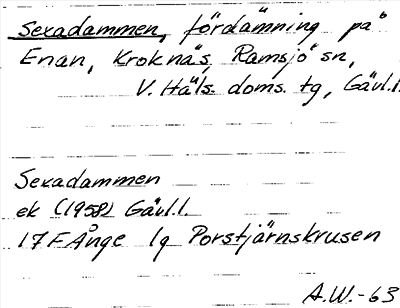 Sexadammen, fördämning på
Enan, Kroknäs, Ramsjö sn,
V. Häls. doms. tg, Gävl.l.
Sexadammen
ek (1958) Gävl.l.
17F Ånge lg Porstjärnskrusen
A.W.-63